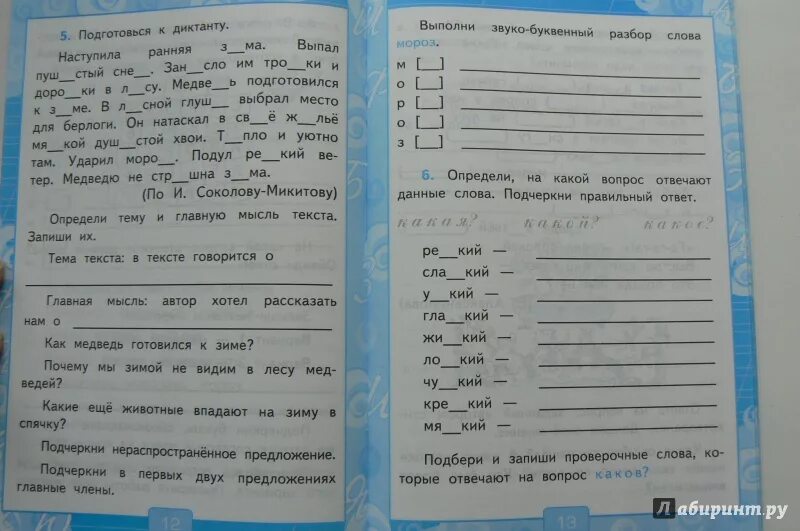 5. Подготовься к диктанту.
Наступила ранняя з__ма. Выпал
пуш__стый сне__. Зан__сло им тро__ки и
доро__ки в л__су. Медве__ь подготовился
к з__ме. В л__сной глуш__ выбрал место
для берлоги. Он натаскал в св__ё ж__льё
мя__кой душ__стой хвои. Т__пло и уютно
там. Ударил моро__. Подул ре__кий ве-
тер. Медведю не стр__шна з__ма.
(По И. Соколову-Микитову)
Определи тему и главную мысль текста.
Запиши их.
Тема текста: в тексте говорится о
Главная мысль: автор хотел рассказать
нам о
Как медведь готовился к зиме?
Почему мы зимой не видим в лесу мед-
ведей?
Какие ещё животные впадают на зиму в
спячку?
Подчеркни нераспространённое предложение.
Подчеркни в первых двух предложениях
главные члены.
12
Выполни звуко-буквенный разбор слова
мороз.
м [__]
о [__]
р [__]
о [__]
з [__]
6. Определи, на какой вопрос отвечают
данные слова. Подчеркни правильный ответ.
какая? какой? какое?
ре__кий —
сла__кий —
у__кий —
гла__кий —
жи__кий —
ло__кий —
чу__кий —
кре__кий —
мя__кий —
Подбери и запиши проверочные слова, ко-
торые отвечают на вопрос каков?
13
Лабиринт.ру